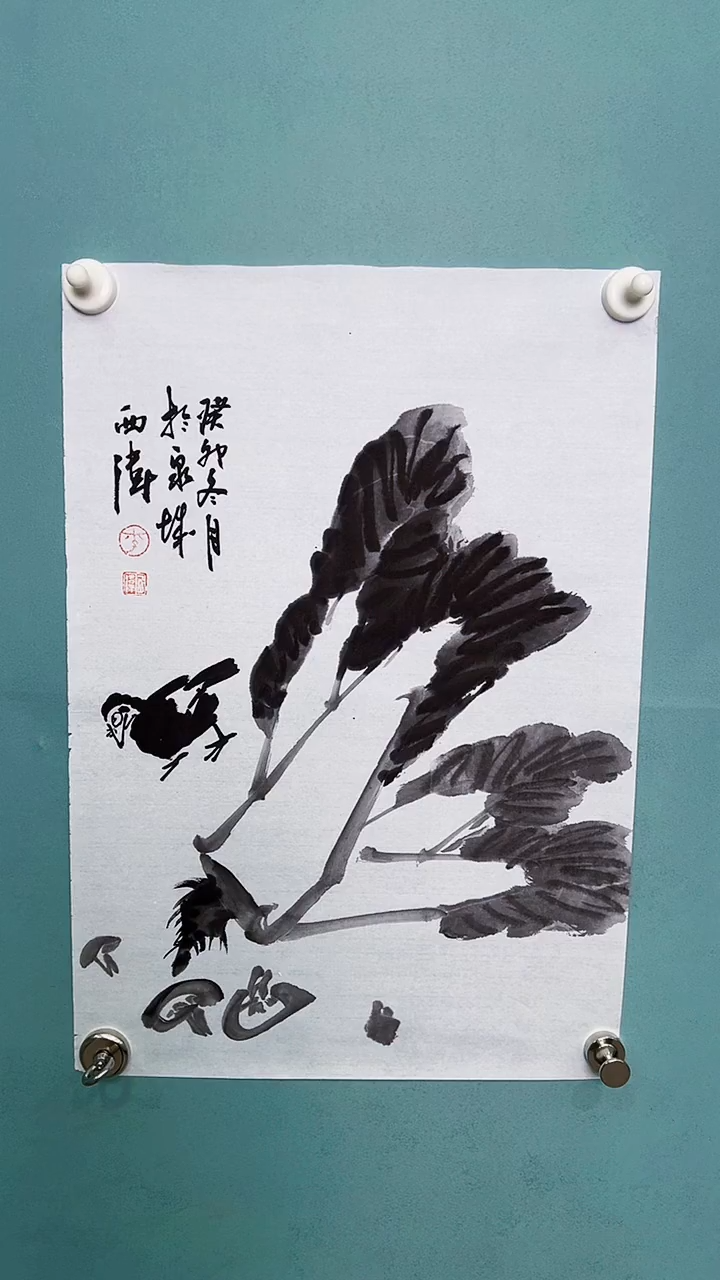 癸卯冬月
於泉城
西涛